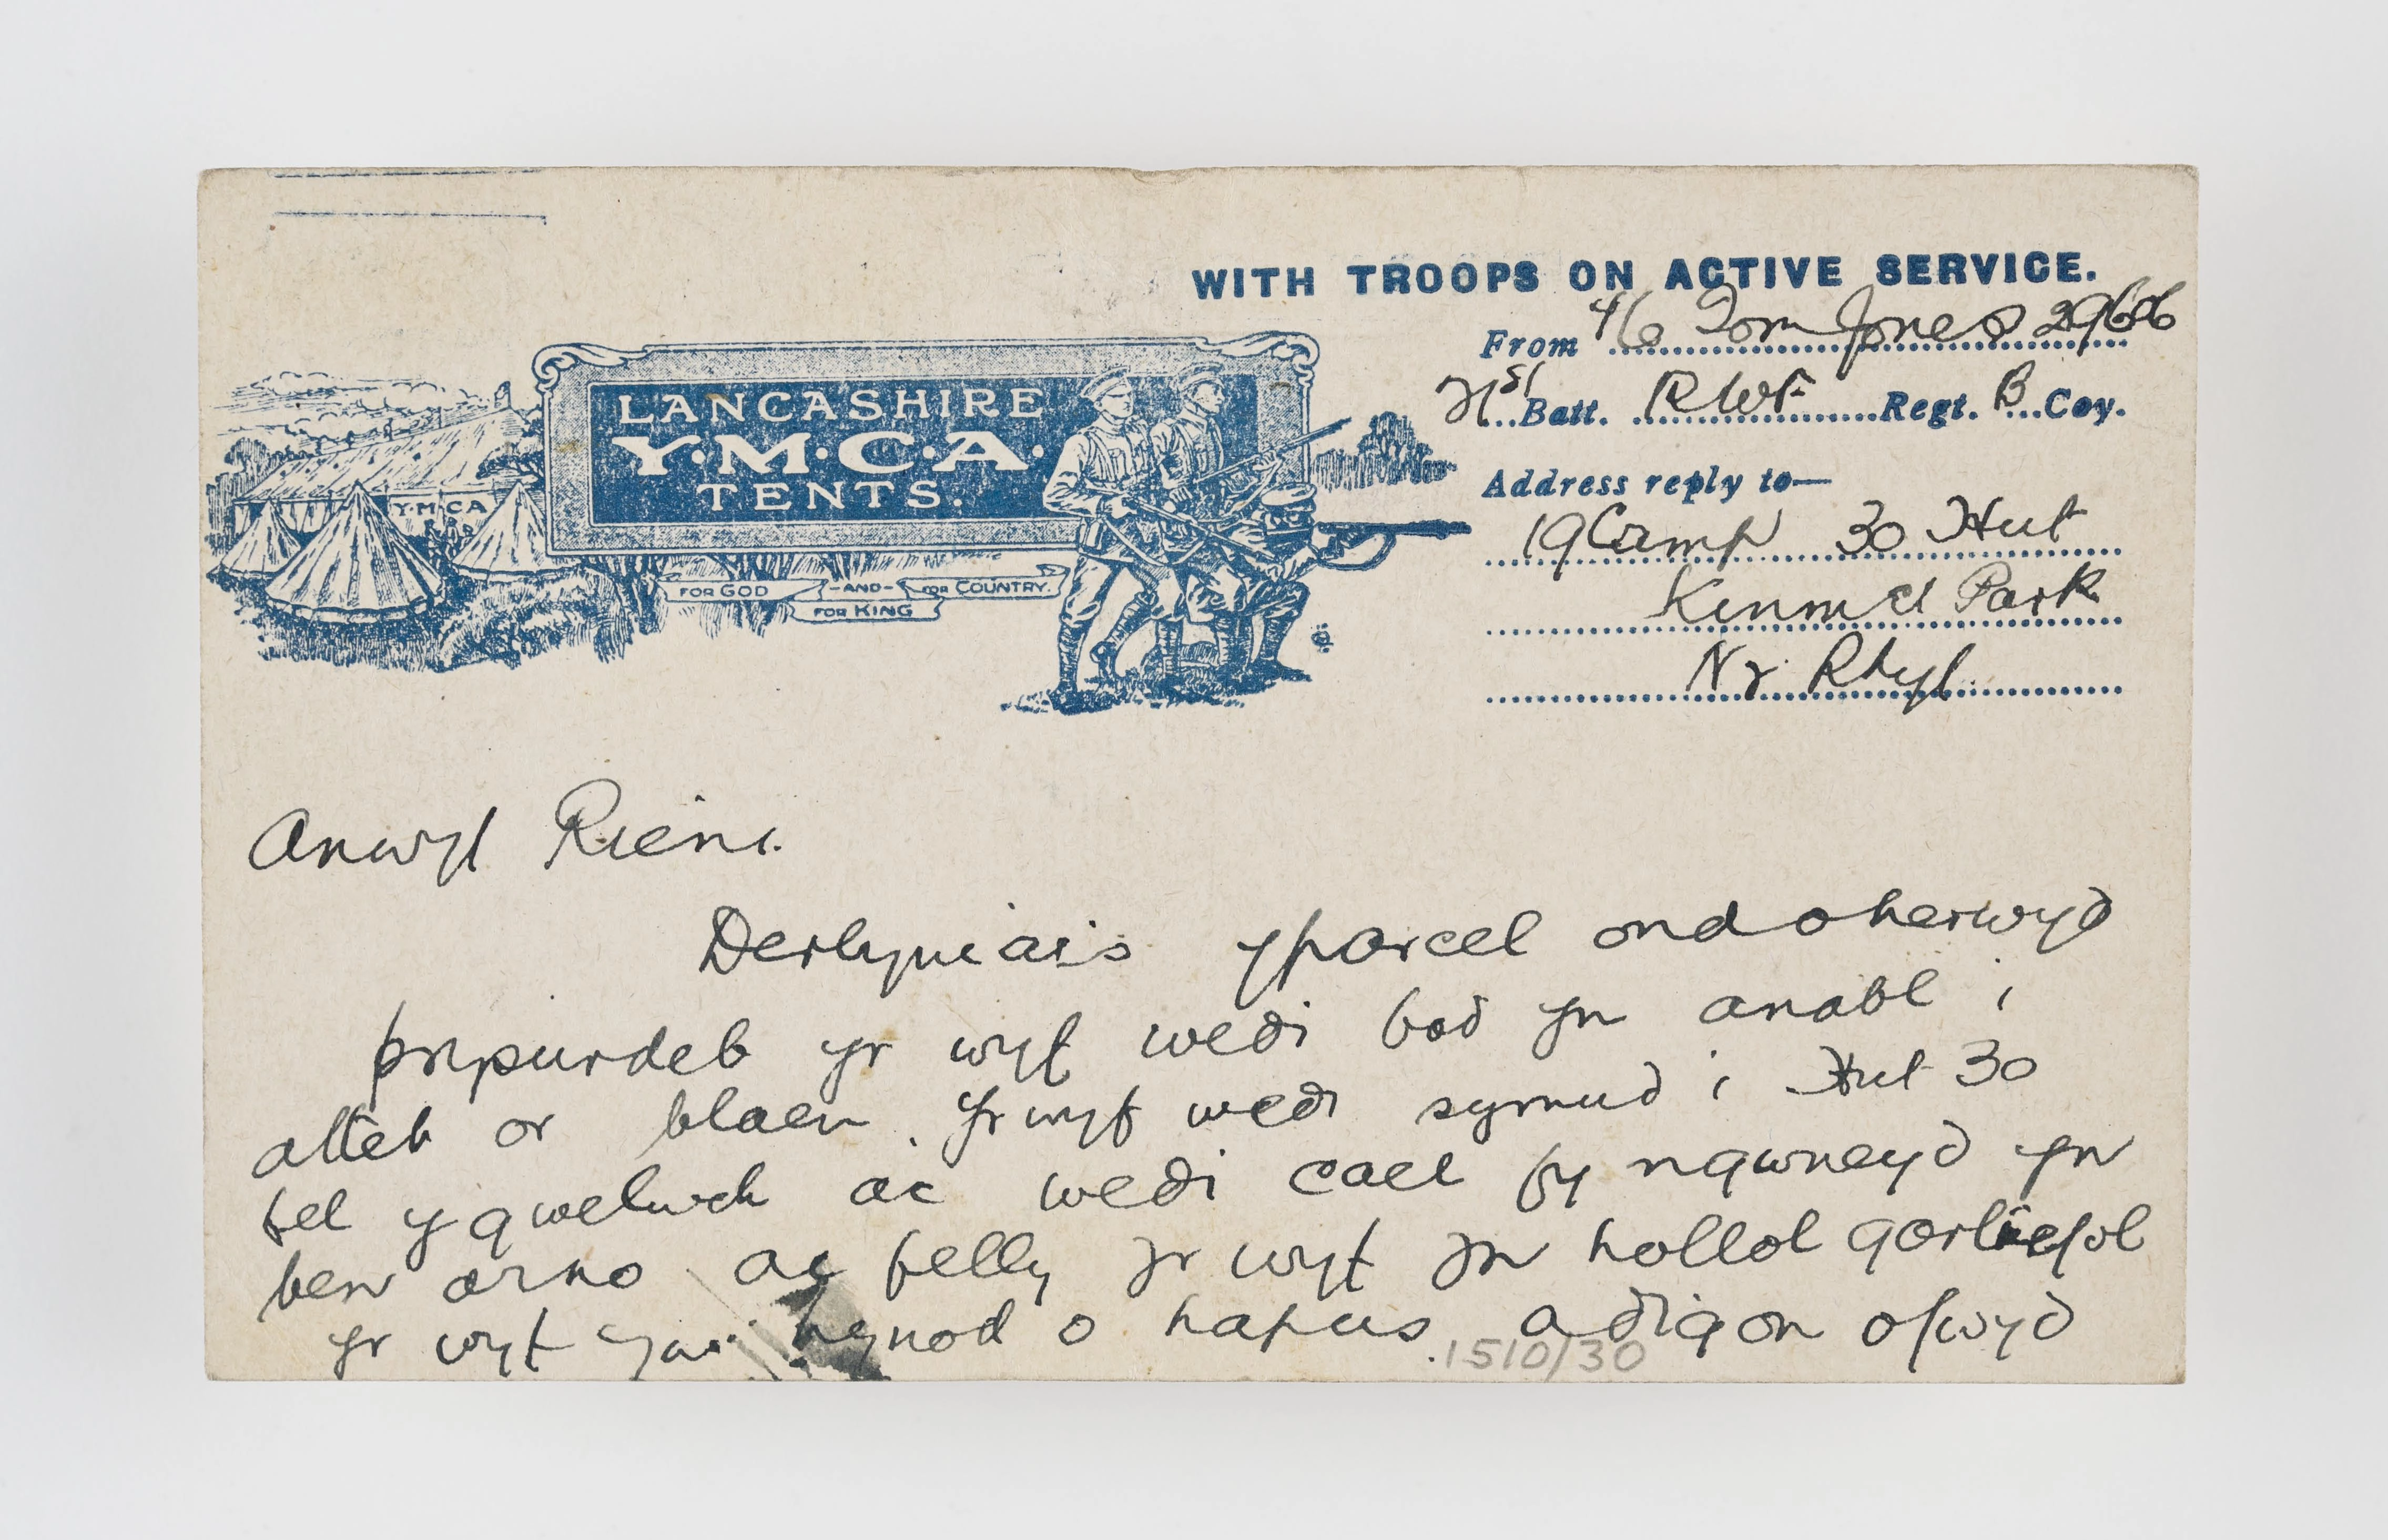 WITH TROOPS ON ACTIVE SERVICE.
From Tom Jones 29606
21st Batt. RWF Regt. B Coy.
LANCASHIRE
Y.M.C.A.
TENTS.
Y.M.C.A
FOR GOD -AND- FOR COUNTRY.
FOR KING
Address reply to—
19 Camp 30 Hut
Kinmel Park
Nr Rhyl.
Anwyl Rieni.
Derbyniais y parcel ond oherwyd
prysurdeb yr wyf wedi bod yn anabl i
atteb or blaen. Yr wyf wedi symud i Hut 30
fel y gwelwch ac wedi cael fy ngwneyd yn
ben arno ac felly yr wyf yn hollol
yr wyf yn hynod o hapus a digon o fwyd
1510/30